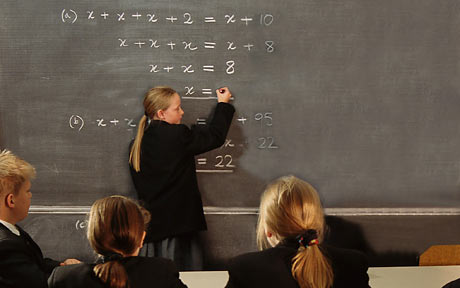 (a) x + x + x + 2 = x + 10
x + x + x = x + 8
x + x = 8
x =
(b) x + x = + 95
x 22
= 22
(c)